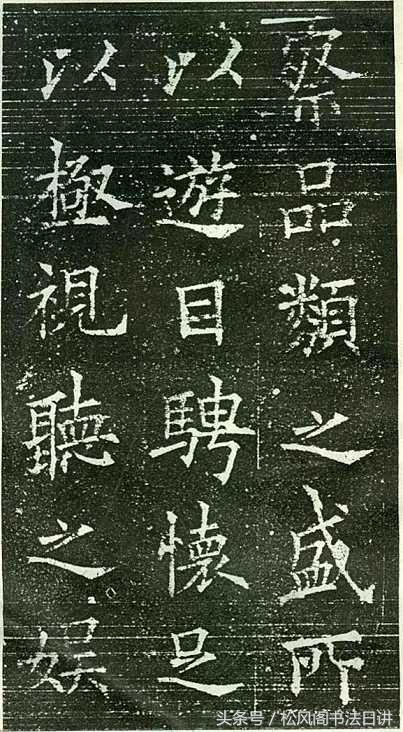 察品類之盛所
以遊目騁懷足
以極視聽之娱
头条号/松风阁书法日讲